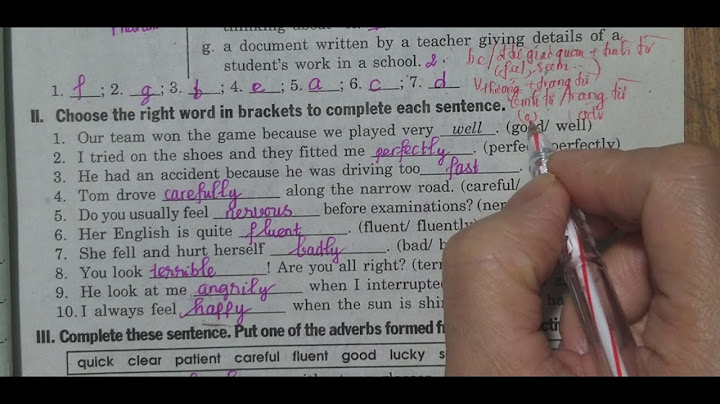 thinking about
g. a document written by a teacher giving details of a
student's work in a school. 2.
be/
tính từ
(feel, seem ...)
V thường + trạng từ
tính từ / trạng từ
(a) adv
1. f ; 2. g ; 3. b ; 4. e ; 5. a ; 6. c ; 7. d
II. Choose the right word in brackets to complete each sentence.
1. Our team won the game because we played very well . (good/ well)
2. I tried on the shoes and they fitted me perfectly . (perfectly)
3. He had an accident because he was driving too fast .
4. Tom drove carefully along the narrow road. (careful/
5. Do you usually feel nervous before examinations? (ner
6. Her English is quite fluent . (fluent/ fluently)
7. She fell and hurt herself badly . (bad/ b
8. You look terrible ! Are you all right? (terr
9. He look at me angrily when I interrupte
10. I always feel happy when the sun is shin ha
III. Complete these sentence. Put one of the adverbs formed f
quick clear patient careful fluent good lucky s